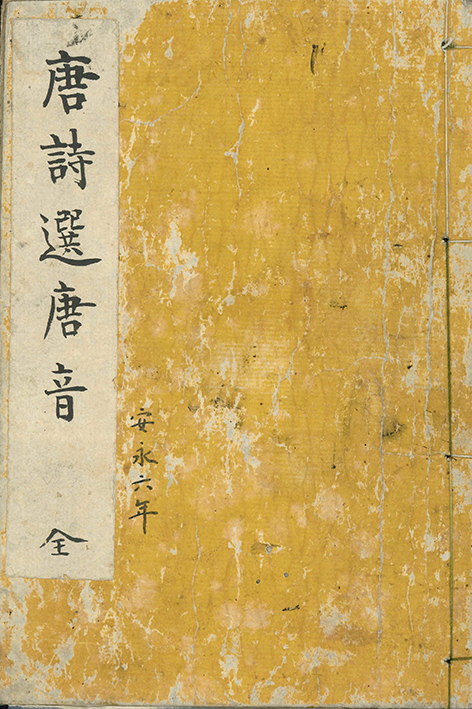 唐詩選唐音　全
安永六年